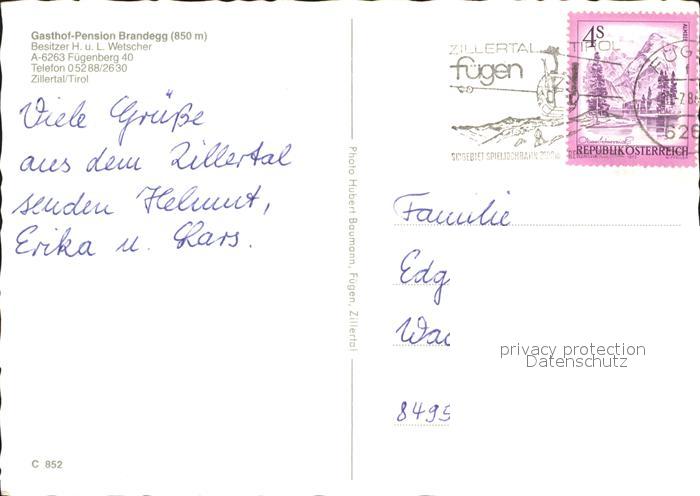 Gasthof-Pension Brandegg (850 m)
Besitzer H. u. L. Wetscher
A-6263 Fügenberg 40
Telefon 05288/2630
Zillertal/Tirol
Viele Grüße
aus dem Zillertal
senden Helmut,
Erika u. Lars.
C 852
Photo Hubert Baumann, Fügen, Zillertal
ZILLERTAL TIROL
fügen
SKIGEBIET SPIELJOCHBAHN
4S
REPUBLIK ÖSTERREICH
FÜG
626
Familie
Edg
Wac
8495
privacy protection
Datenschutz